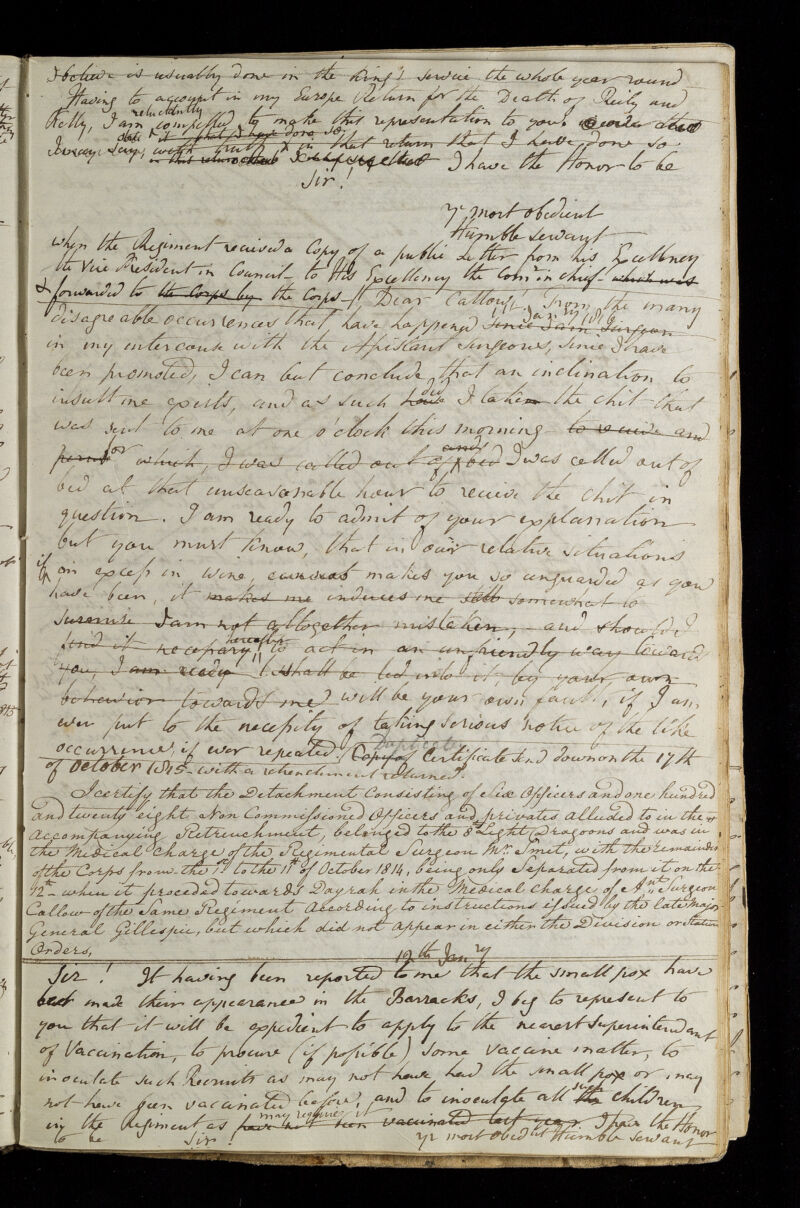 I believe is usually done in the King's Service the whole year round
Having to account in my Europe Return for the Death of Reily and
Kelly, I am reluctantly compelled to make this representation to you
in that return that I have done so.
I have the Honor to be
Sir!
yr most obedient
Humble servant
When the Regiment received a Copy of a public Letter from his Excellency
the Vice President in Council to His Excellency the Comr in chief which was
& forwarded to the Corps by the Corps
Dear Callow! From the many
11th Jany 1816
disagreeable occurrences that have happened since I am Surgeon
in my intercourse with the Assistant Surgeons, since I have
been promoted, I can but conclude, that an inclination to
insult me exists, and as such have did I take the chit that
was sent to me at one o'clock this morning to receive and
for which, I was called out of bed and I was called out of
bed at that unseasonable hour to receive the chit in
question. I am ready to admit of your explanation
but you must know, that in our relative situations
if an excess in wine, makes you so unguarded as you
have been, it makes me induces me still somewhat to
surmise I am not altogether mistaken, and should I
find it necessary hereafter to act in an unfriendly way towards
you, I am ready I shall be led into it by your own
behavior towards me will be your own fault, if I am
ever put to the necessity of taking serious notice of the like
occurrence, if ever repeated. Copy of Duplicate Certificate send down on the 17th
of October 1815 with a retrenchment returned.
I certify that the Detachment Consisting of Six Officers and one hundred
and twenty eight Non Commissioned Officers and privates alluded to in the
accompanying Retrenchment, belonged to the 8th Light Dragoons and was in
the Medical Charge of the Regimental Surgeon Mr. Smet, with the remainder
of the Corps from the 1st to the 11th of October 1814, being only Separated from it on the
12th when it proceded towards Dayrah in the Medical charge of Ast Surgeon
Callow of the Same Regiment according to instructions issued by the late Major
General Gillespie, but which did not appear in either the Division or Station
Orders.
19th Jany
Sir! It having been reported to me that the small pox have
made their appearance in the Barracks, I beg to represent to
you that it will be expedient to apply to the nearest Superintendant
of Vaccination, to procure (if possible) some vaccine matter, to
inoculate such Recruits as may not have had the small pox or may
not have been vaccinated before, and to inoculate all the such children
in the Regiment as may require it have not been vaccinated last year. I have the Honor
to be Sir! yr most obedt Humble servant